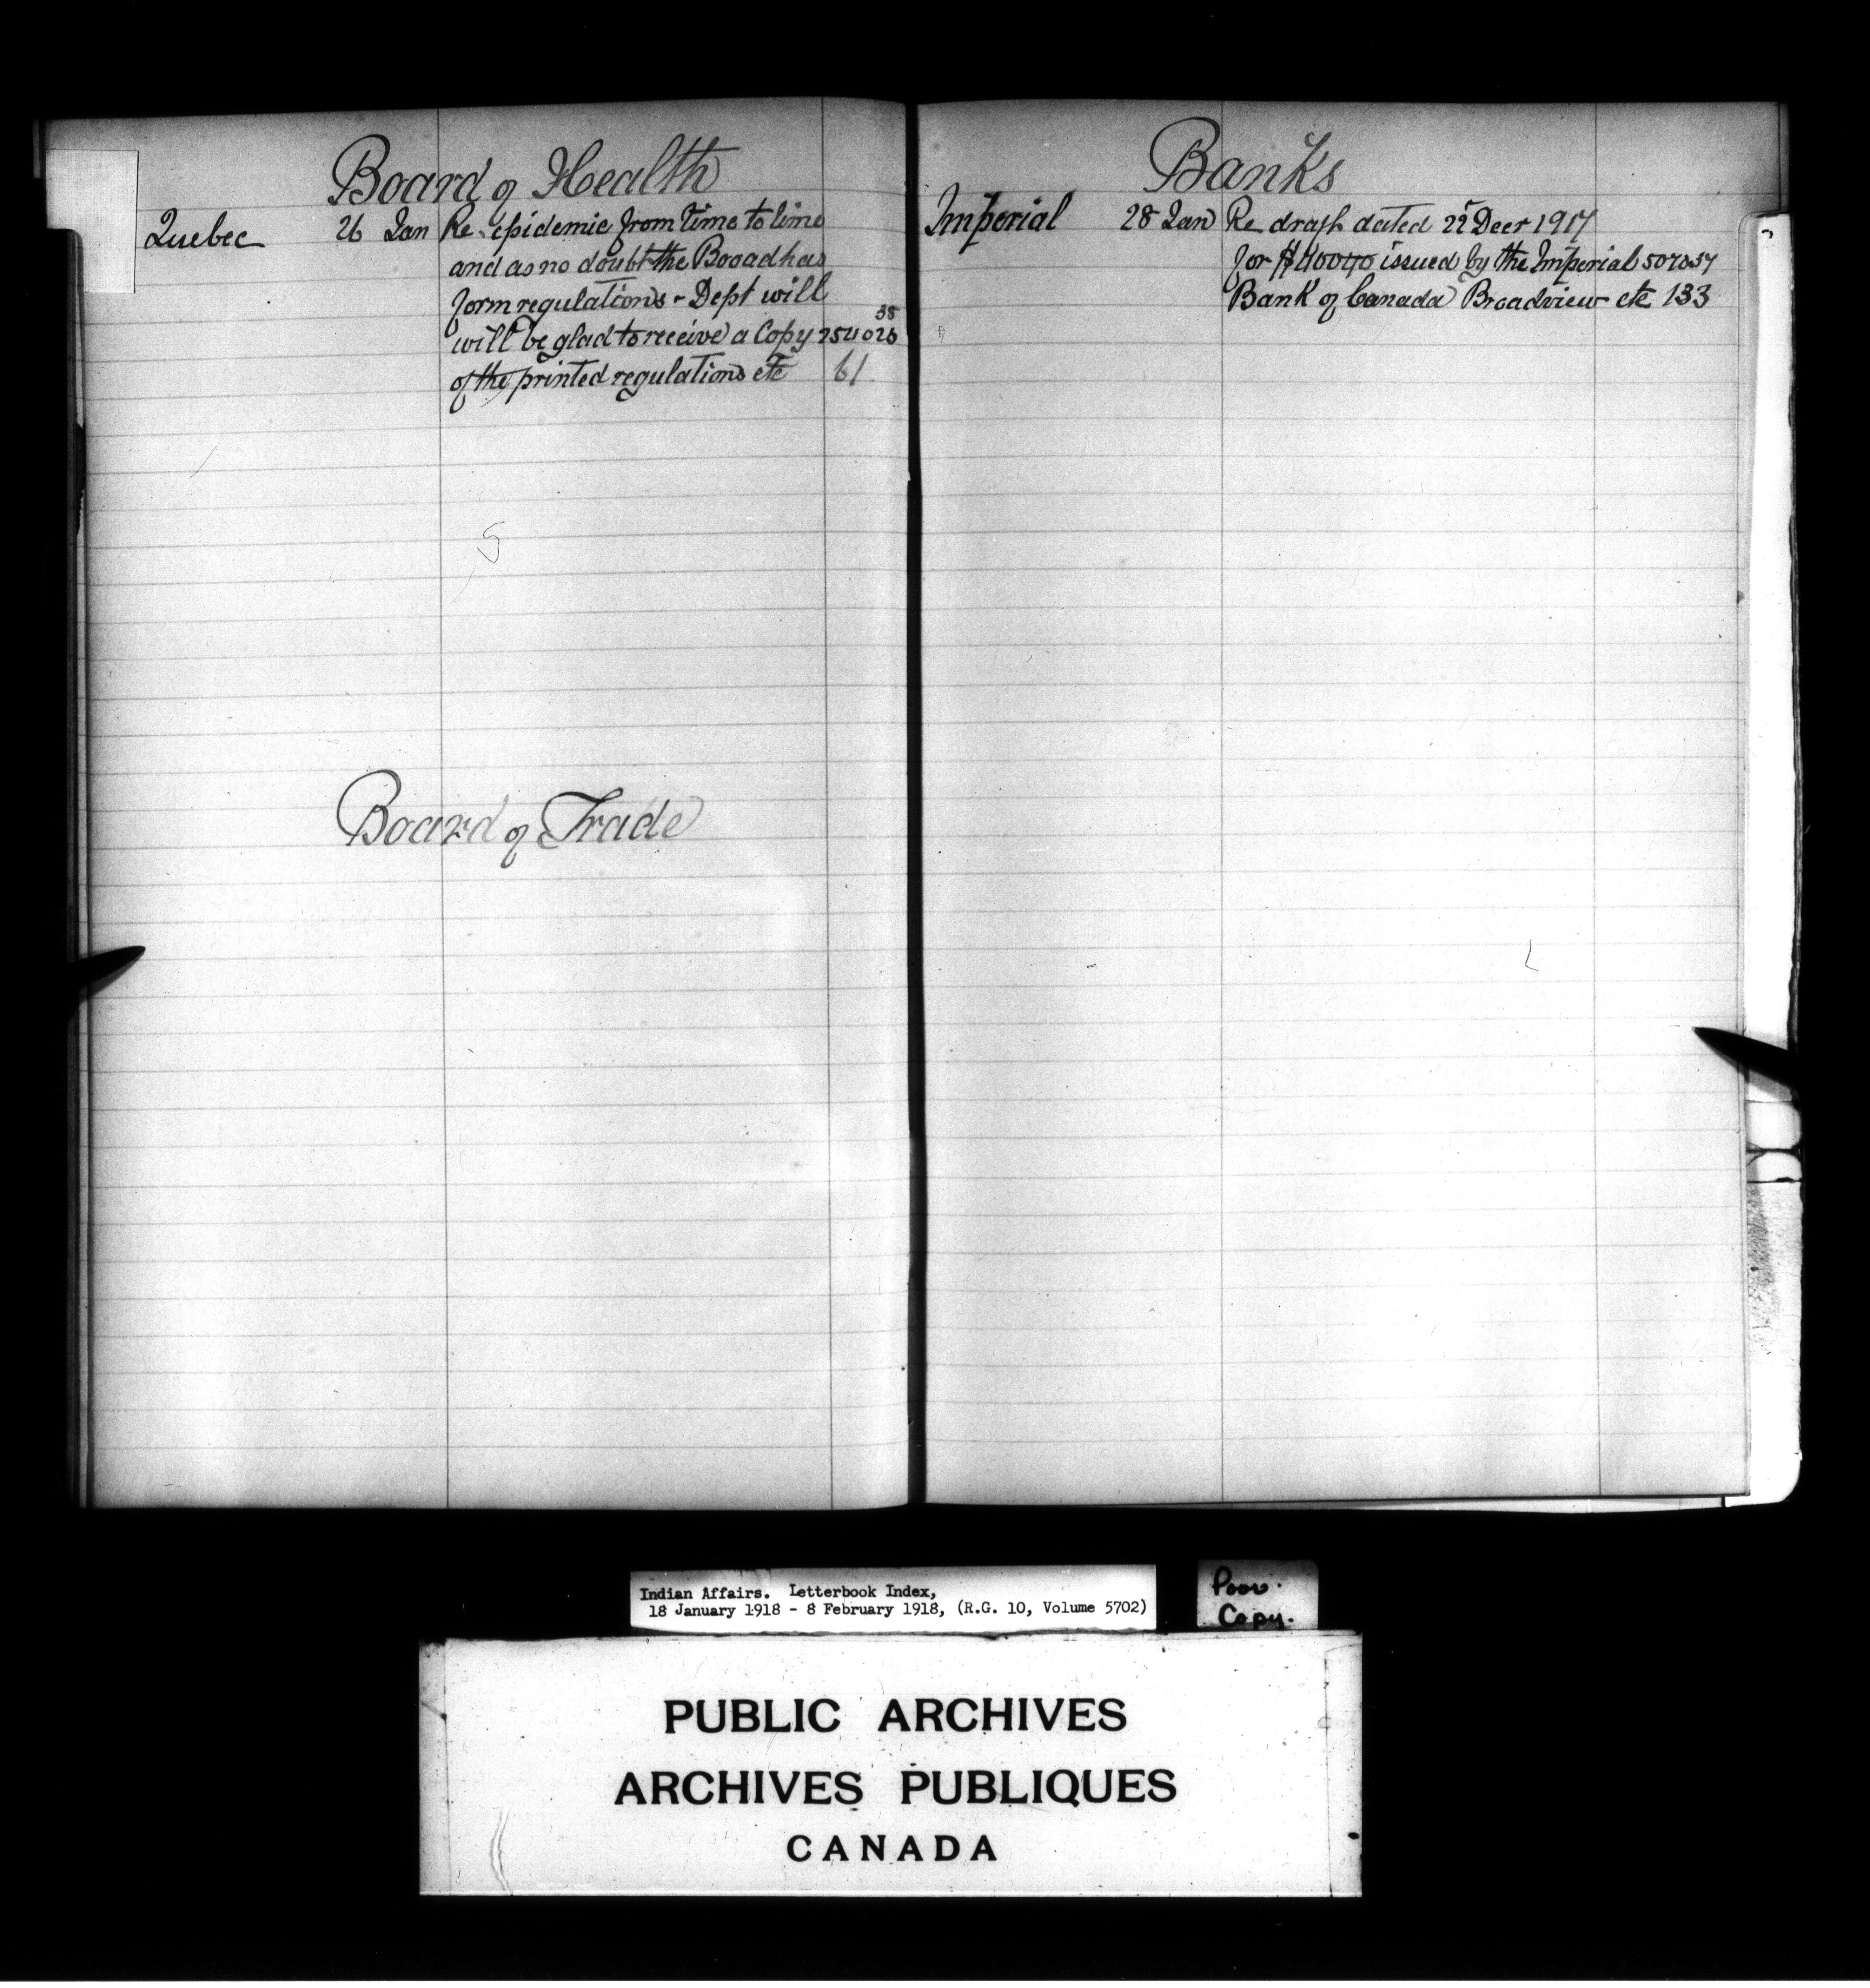 Board of Health
Quebec 26 Jan Re epidemic from time to time
and as no doubt the Booad has
form regulations - Dept will
38
will be glad to receive a Copy 254028
of the printed regulations etc 61
5
Board of Trade
Banks
Imperial 28 Jan Re draft dated 22 Decr 1917
for issued by the Imperial 507837
Bank of Canada Broadview etc 133
Indian Affairs. Letterbook Index,
18 January 1918 - 8 February 1918, (R.G. 10, Volume 5702)
Poor.
Copy.
PUBLIC ARCHIVES
ARCHIVES PUBLIQUES
CANADA